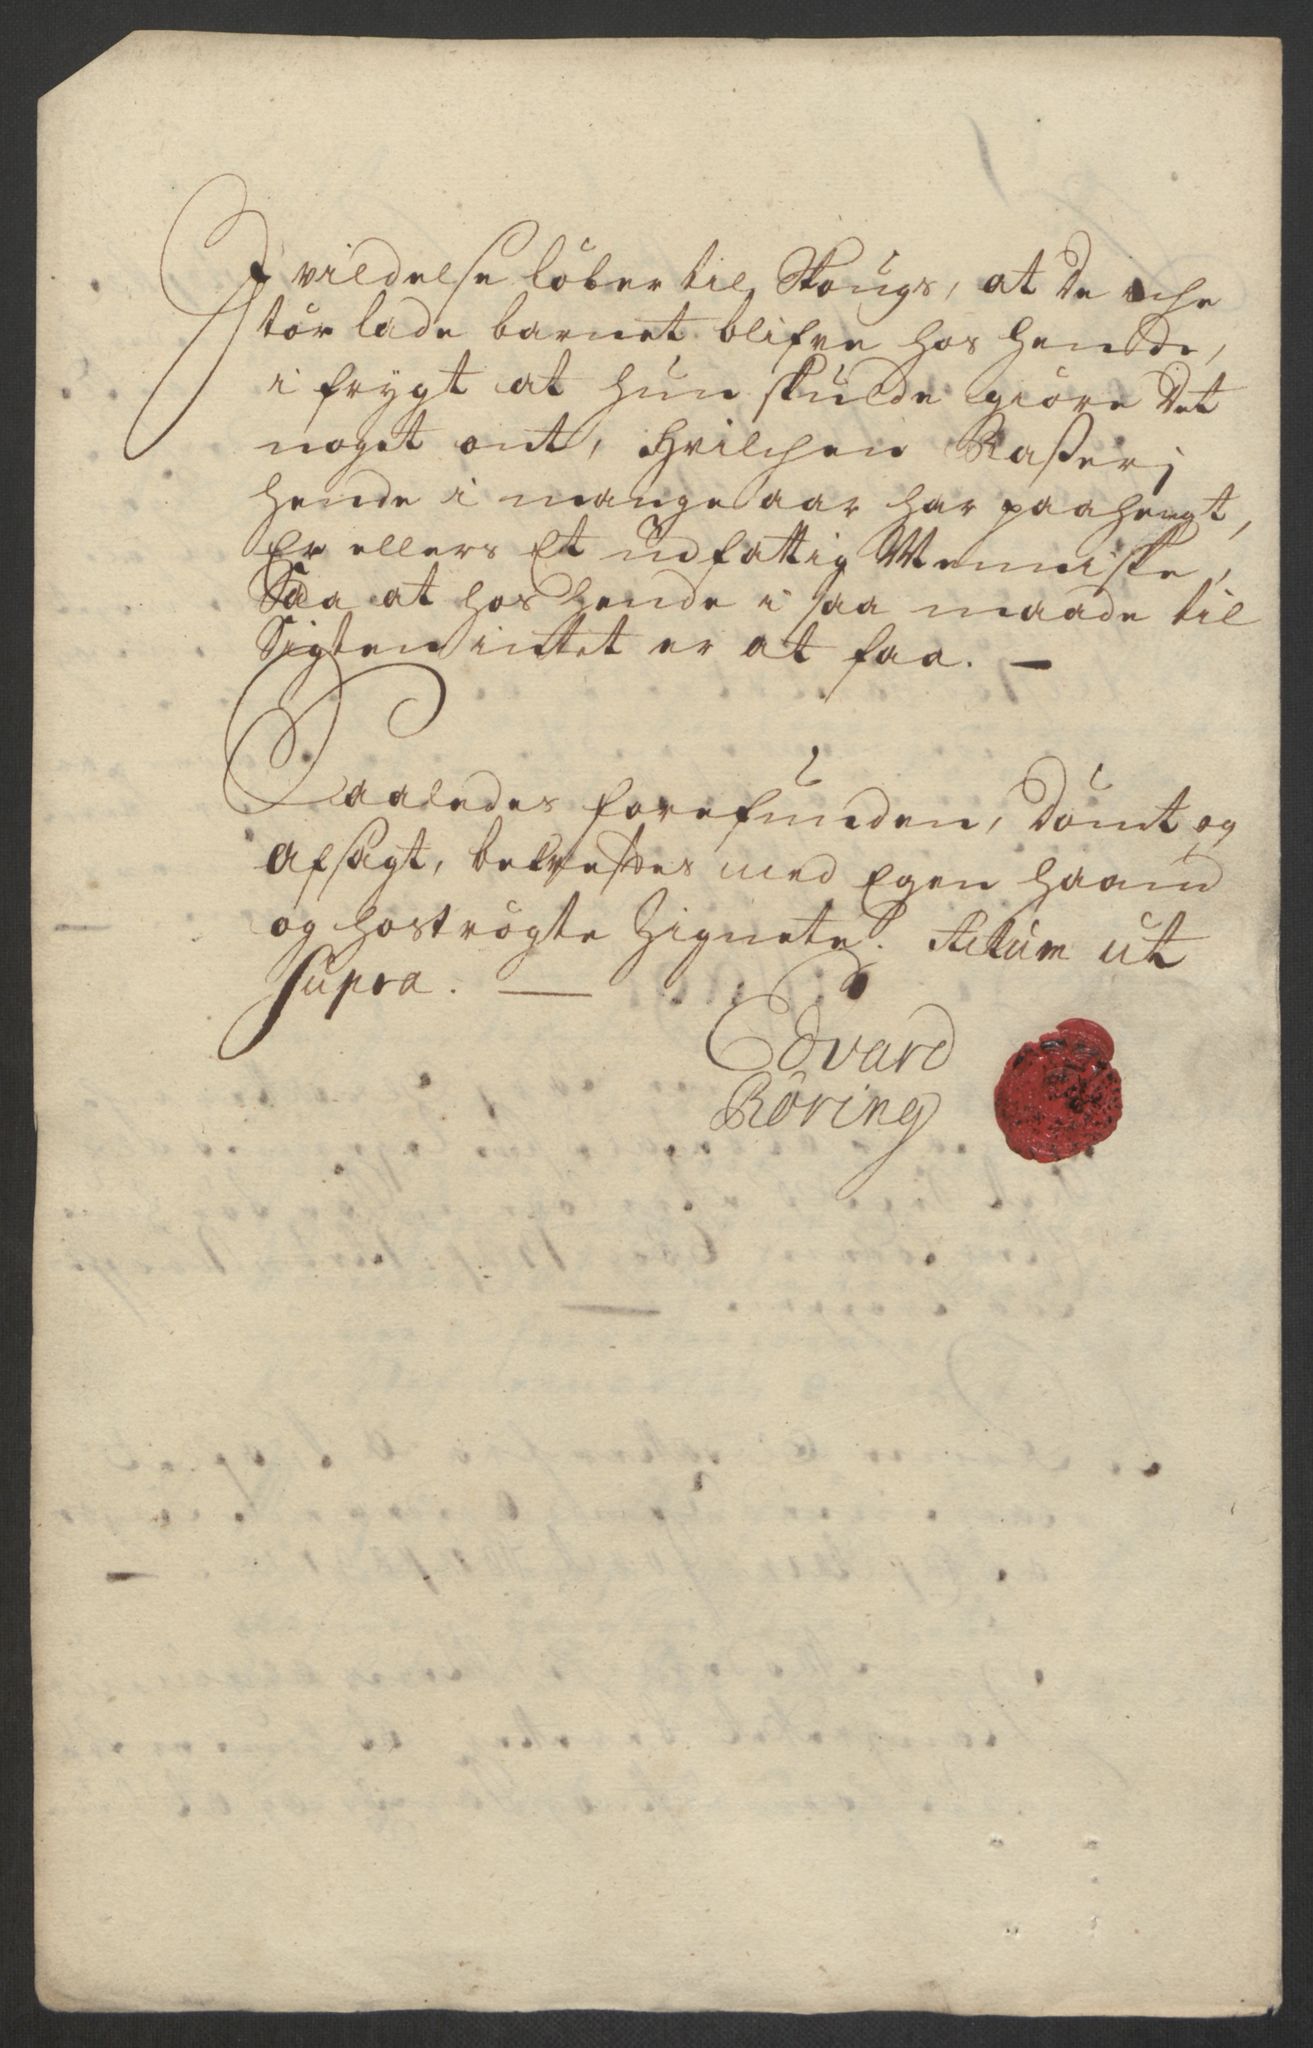 I vildelse löber til Skougs, at De iche
tör lade barnet blifve hos hende,
i frygt at hun skulde giöre Det
noget ont, hvilchen Raßerj
hende i mange aar har paahengt,
Er ellers Et udfattig Menniske,
Saa at hos hende i saa maade til
Sigten intet er at faa. —
Saaledes forefunden, Dömt og
afsagt, bekreftes med Egen haand
og hoströgte Zignete. Actum ut
supra. —
Edvard
Röring